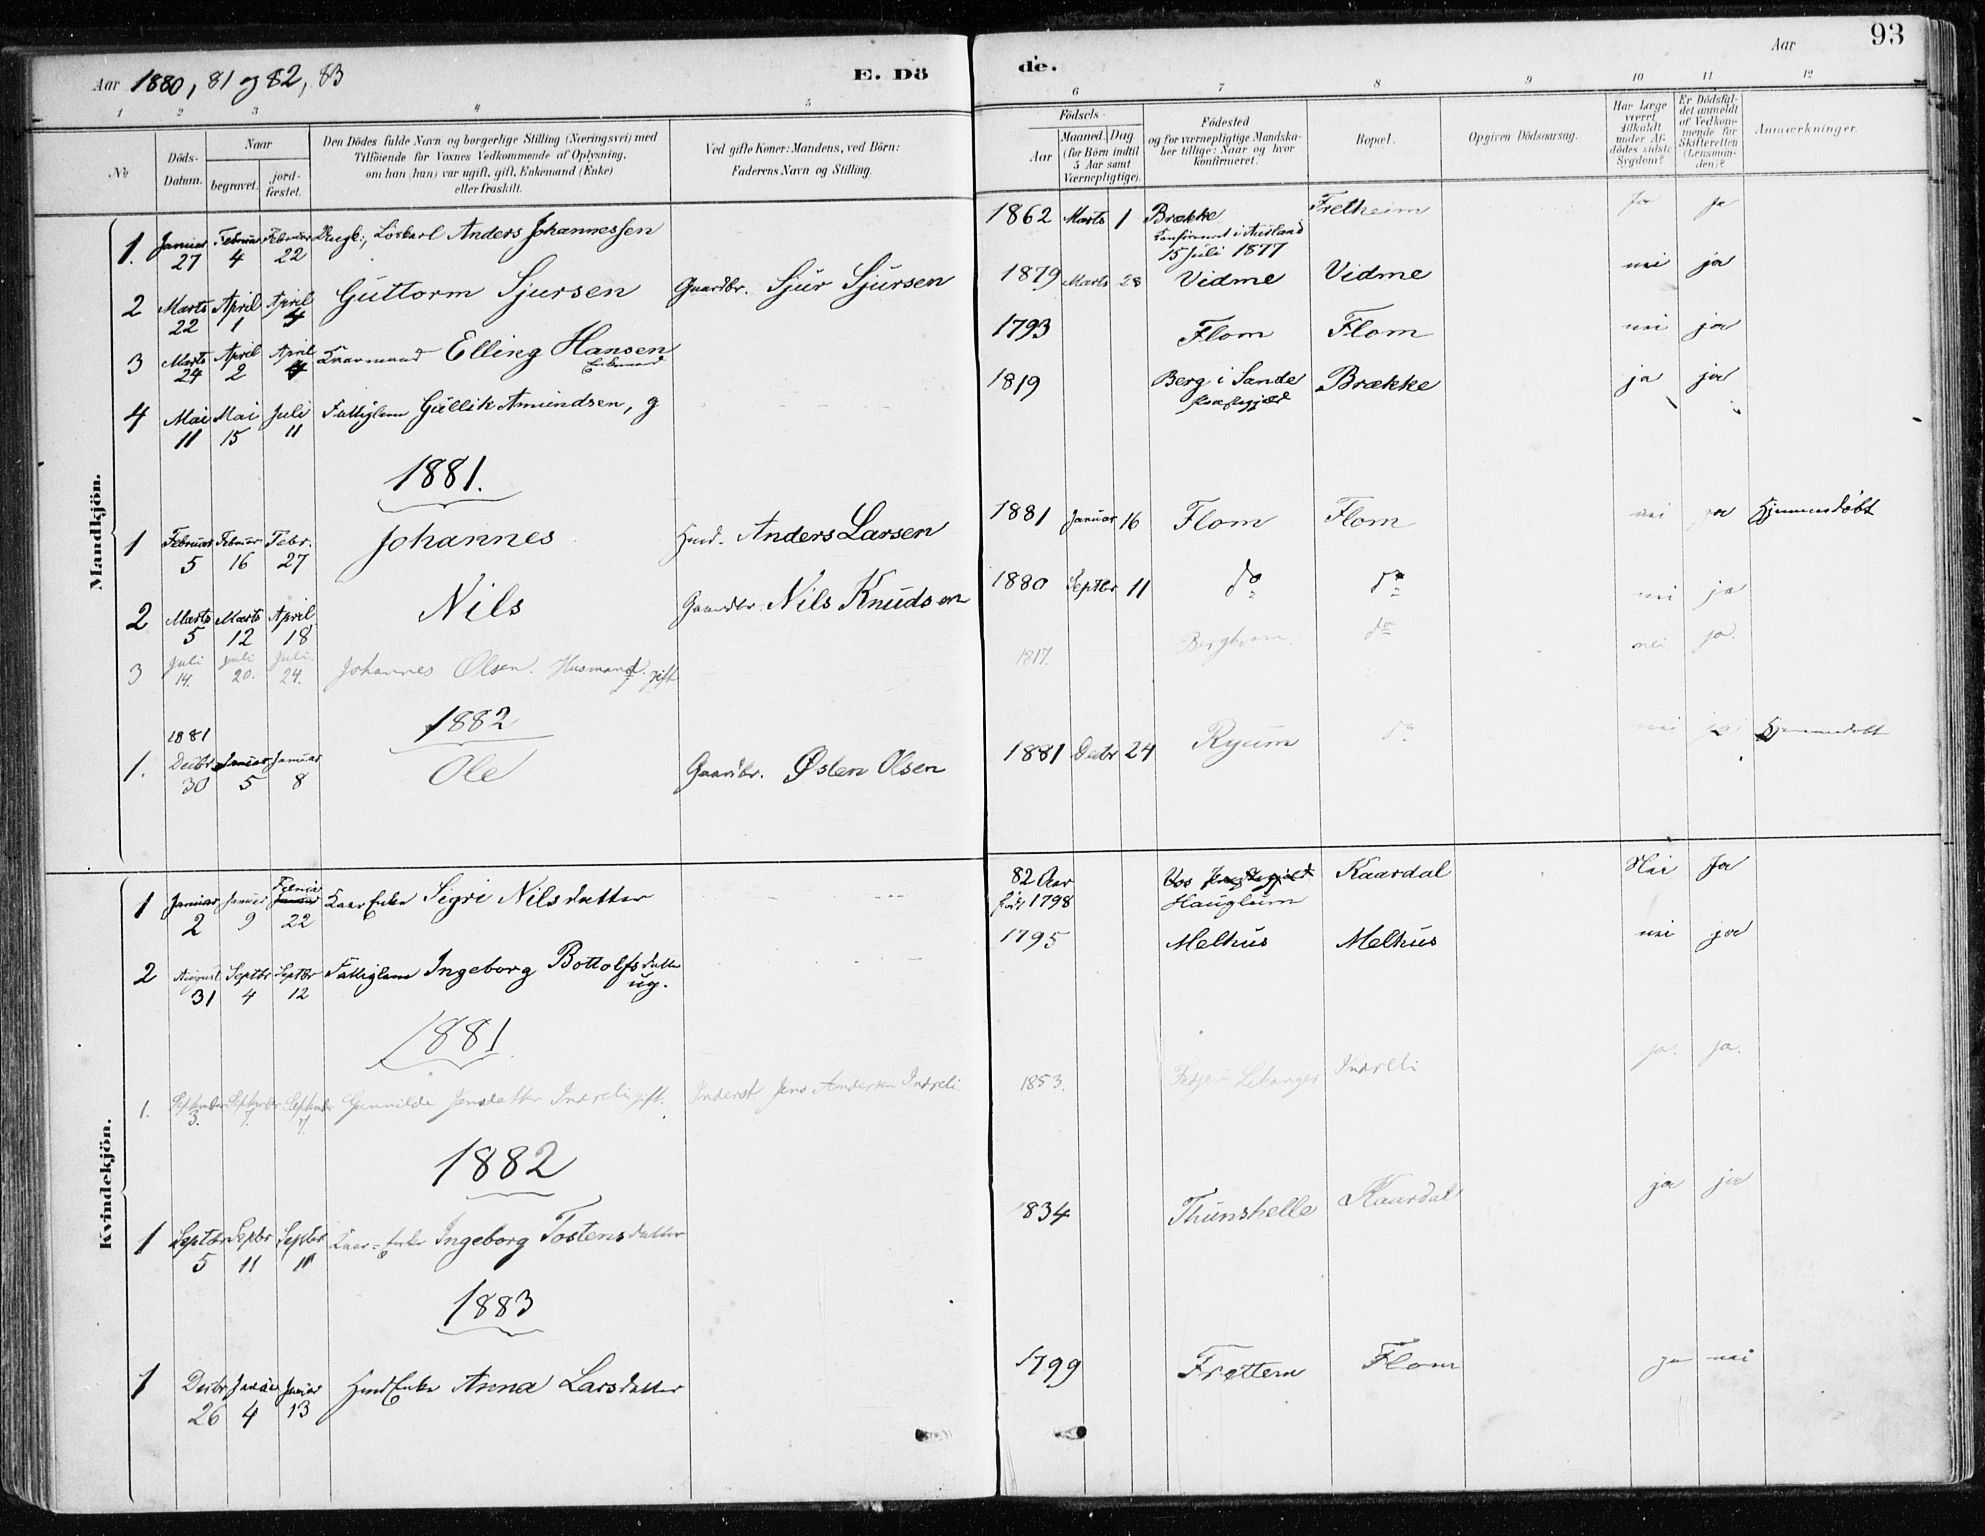 Aar 1880, 81 og 82, 83 E. Dö
de. Aar 93
1 2 3 4 5 6 7 8 9 10 11 12
No
Döds-Datum.
Naar
begravet.
jord-fæstet.
Den Dödes fulde Navn og borgerlige Stilling (Næringsvei) med
Tilföiende for Voxnes Vedkommende af Oplysning,
om han (hun) var ugift, gift, Enkemand (Enke)
eller fraskilt.
Ved gifte Koner: Mandens, ved Börn:
Faderens Navn og Stilling.
Födsels-
Aar
Maaned. Dag
(for Börn indtil
5 Aar samt
Værnepligtige).
Födested
og for værnepligtige Mandska-
ber tillige: Naar og hvor
konfirmeret.
Bopæl.
Opgiven Dödsaarsag.
Har Læge
været
tilkaldt
under Af-
dödes sidste
Sygdom?
Er Dödsfal-
det anmeldt
af Vedkom-
mende for
Skifteretten
(Lensman-
den)?
Anmærkninger.
Mandkjön.
1. Januar 27 Februar 4 Februar 22 Anders Johannessen 1862 Marts 1 Brække Fretheim Ja ja
Confirmeret i Aurland
15 Juli 1877
2 Marts 22 April 1 April 4 Guttorm Sjursen Gaardbr. Sjur Sjursen 1879 Marts 28 Vidme Vidme nei ja
3 Marts 24 April 2 April 4 Kaarmand Elling Hansen 1793 Flom Flom nei ja
Enkemand
4 Mai 11 Mai 15 Juli 11 Fattiglem Gullik Amundsen, g 1819 Berg i Sande Brække ja ja
Præstegjæld
1881.
1 Februar 5 Februar 16 Febr. 27 Johannes Husmd. Anders Larsen 1881 Januar 16 Flom Flom nei ja Hjemmedøbt
2 Marts 5 Marts 12 April 18 Nils Gaardbr. Nils Knudsen 1880 Septbr 11 do do nei ja
3 Juli 14. Juli 20. Juli 24. Johannes Olsen. Husmand. gift 1817. Berghvam. do nei ja.
1882
1881
1. Decbr 30 Januar 5 Januar 8 Ole Gaardbr. Østen Olsen 1881 Decbr 24 Ryum do nei ja Hjemmedøbt
Kvindekjön.
1 Januar 2 Januar 9 Februar 22 Kaar Enke Sigri Nilsdatter 82 Aar Vos Præstegjæld Kaardal Nei Ja
født 1798 Hauglum
2 August 31 Septbr 4 Septbr 12 Fattiglem Ingeborg Bottolfsdatter 1795 Melhus Melhus nei ja
ug.
1881
1. September 3. September 7. September 7. Gunnilda Jensdatter Indreli gift. Inderst Jens Andersen Indreli 1853. Leikanger Indreli ja. ja.
1882
1 Septbr 5 Septbr 11 Septbr 11 Kaar=Enke Ingeborg Tostensdatter 1834 Thunshelle Kaardal ja ja
1883
1 Decbr 26 Januar 4 Januar 13 Husmd Enke Anna Larsdatter 1799 Frettem Flom ja nei